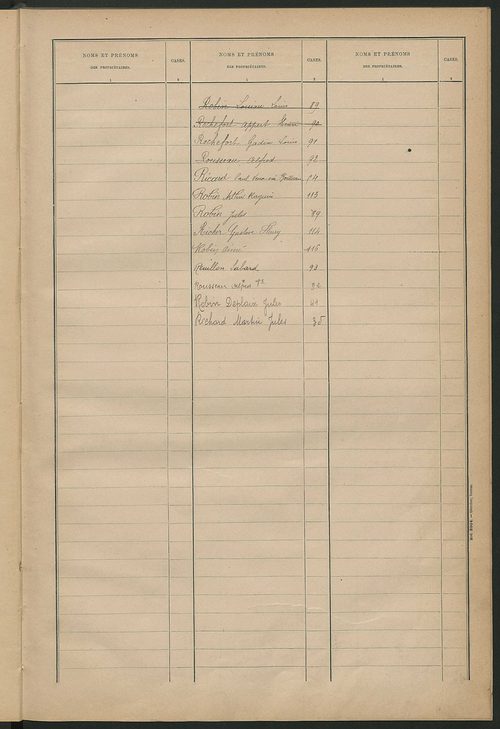 NOMS ET PRÉNOMS
DES PROPRIÉTAIRES.
1
CASES.
2
NOMS ET PRÉNOMS
DES PROPRIÉTAIRES.
1
CASES.
2
NOMS ET PRÉNOMS
DES PROPRIÉTAIRES.
1
CASES.
2
Robin Louis 89
Rochefort Appert 90
Rochefort Gadin Louis 91
Rousseau Alfred 92
Ricard Paul 84
Robin Arthur 113
Robin Jules 89
Gustave Henry 114
Robin Aimé 116
Rouillon Sabard 93
Rousseau Alfred 92
Robin Deplaix Jules 41
Richard Martin Jules 35